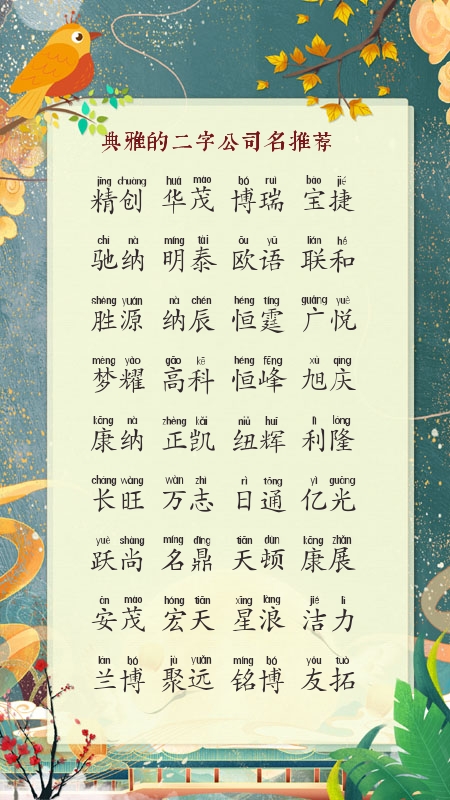 典雅的二字公司名推荐
jīng chuàng huá mào bó ruì bǎo jié
精创 华茂 博瑞 宝捷
chí nà míng tài ōu yǔ lián hé
驰纳 明泰 欧语 联和
shèng yuán nà chén héng tíng guǎng yuè
胜源 纳辰 恒霆 广悦
mèng yào gāo kē héng fēng xù qìng
梦耀 高科 恒峰 旭庆
kāng nà zhèng kǎi niǔ huī lì lóng
康纳 正凯 纽辉 利隆
cháng wàng wàn zhì rì tōng yì guāng
长旺 万志 日通 亿光
yuè shàng míng dǐng tiān dùn kāng zhǎn
跃尚 名鼎 天顿 康展
ān mào hóng tiān xīng làng jié lì
安茂 宏天 星浪 洁力
lán bó jù yuǎn míng bó yǒu tuò
兰博 聚远 铭博 友拓